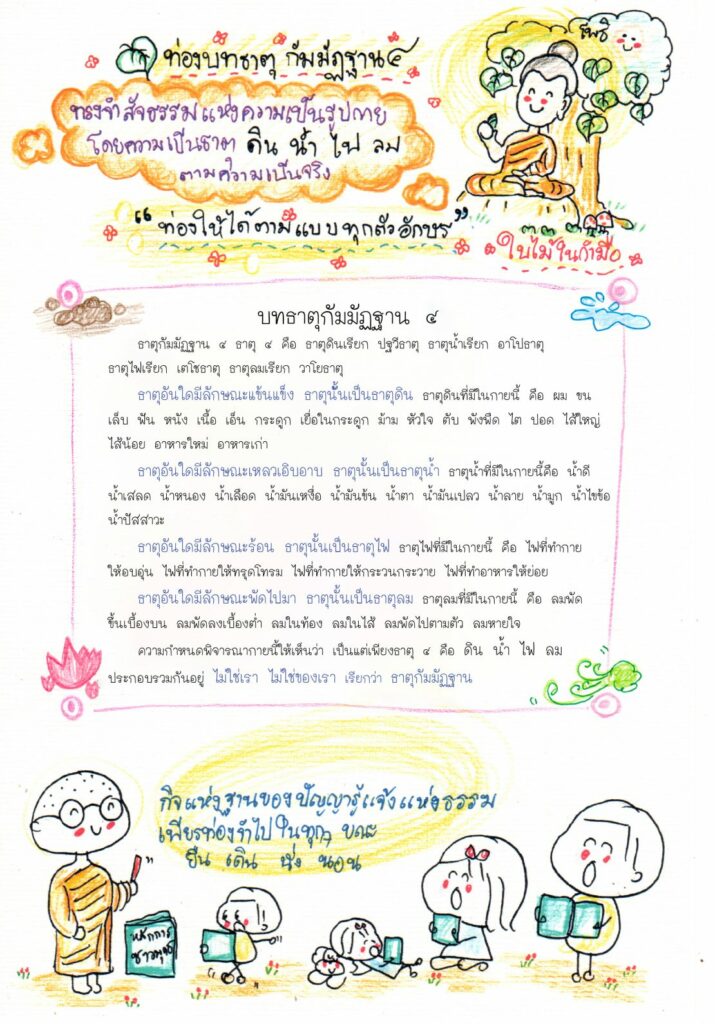 โพธิ
ท่องบทธาตุ กัมมัฏฐาน๔
ทรงจำสัจธรรมแห่งความเป็นรูปกาย
โดยความเป็นธาตุ ดิน น้ำ ไฟ ลม
ตามความเป็นจริง
"ท่องให้ได้ตามแบบทุกตัวอักษร"
ใบไม้ในกำมือ
บทธาตุกัมมัฏฐาน ๔
ธาตุกัมมัฏฐาน ๔ ธาตุ ๔ คือ ธาตุดินเรียก ปฐวีธาตุ ธาตุน้ำเรียก อาโปธาตุ
ธาตุไฟเรียก เตโชธาตุ ธาตุลมเรียก วาโยธาตุ
ธาตุอันใดมีลักษณะแข้นแข็ง ธาตุนั้นเป็นธาตุดิน ธาตุดินที่มีในกายนี้ คือ ผม ขน
เล็บ ฟัน หนัง เนื้อ เอ็น กระดูก เยื่อในกระดูก ม้าม หัวใจ ตับ พังผืด ไต ปอด ไส้ใหญ่
ไส้น้อย อาหารใหม่ อาหารเก่า
ธาตุอันใดมีลักษณะเหลวเอิบอาบ ธาตุนั้นเป็นธาตุน้ำ ธาตุน้ำที่มีในกายนี้คือ น้ำดี
น้ำเสลด น้ำหนอง น้ำเลือด น้ำมันเหงื่อ น้ำมันข้น น้ำตา น้ำมันเปลว น้ำลาย น้ำมูก น้ำไขข้อ
น้ำปัสสาวะ
ธาตุอันใดมีลักษณะร้อน ธาตุนั้นเป็นธาตุไฟ ธาตุไฟที่มีในกายนี้ คือ ไฟที่ทำกาย
ให้อบอุ่น ไฟที่ทำกายให้ทรุดโทรม ไฟที่ทำกายให้กระวนกระวาย ไฟที่ทำอาหารให้ย่อย
ธาตุอันใดมีลักษณะพัดไปมา ธาตุนั้นเป็นธาตุลม ธาตุลมที่มีในกายนี้ คือ ลมพัด
ขึ้นเบื้องบน ลมพัดลงเบื้องต่ำ ลมในท้อง ลมในไส้ ลมพัดไปตามตัว ลมหายใจ
ความกำหนดพิจารณากายนี้ให้เห็นว่า เป็นแต่เพียงธาตุ ๔ คือ ดิน น้ำ ไฟ ลม
ประกอบรวมกันอยู่ ไม่ใช่เรา ไม่ใช่ของเรา เรียกว่า ธาตุกัมมัฏฐาน
กิจแห่งฐานของปัญญารู้แจ้งแห่งธรรม
เพียรท่องจำไปในทุกๆ ขณะ
ยืน เดิน นั่ง นอน
หลักการ
ชาวพุทธ